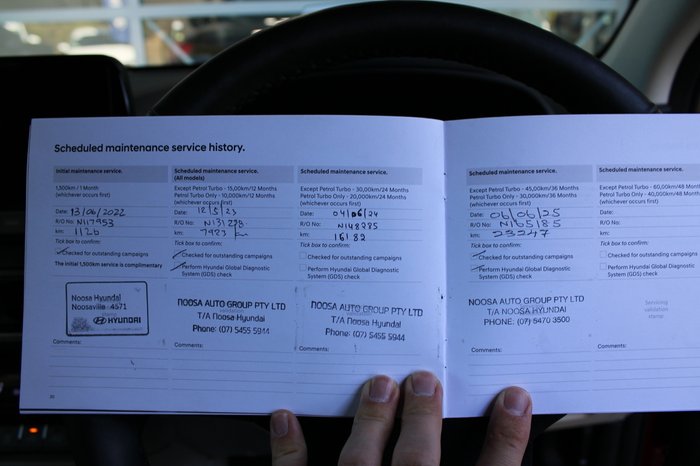 Scheduled maintenance service history.
Initial maintenance service.
1,500km / 1 Month
(whichever occurs first)
Date: 13/06/2022
R/O No: N117953
km: 1126
Tick box to confirm:
Checked for outstanding campaigns
The initial 1,500km service is complimentary
Noosa Hyundai
Noosaville 4571
HYUNDAI
Comments:
Scheduled maintenance service.
(All models)
Except Petrol Turbo - 15,00km/12 Months
Petrol Turbo Only - 10,000km/12 Months
(whichever occurs first)
Date: 12/5/23
R/O No: N131298
km: 7923 km
Tick box to confirm:
Checked for outstanding campaigns
Perform Hyundai Global Diagnostic
System (GDS) check
NOOSA AUTO GROUP PTY LTD
T/A Noosa Hyundai
Phone: (07) 5455 5944
Comments:
Scheduled maintenance service.
Except Petrol Turbo - 30,00km/24 Months
Petrol Turbo Only - 20,000km/24 Months
(whichever occurs first)
Date: 04/06/24
R/O No: N148285
km: 16182
Tick box to confirm:
Checked for outstanding campaigns
Perform Hyundai Global Diagnostic
System (GDS) check
NOOSA AUTO GROUP PTY LTD
T/A Noosa Hyundai
Phone: (07) 5455 5944
Comments:
30
Scheduled maintenance service.
Except Petrol Turbo - 45,00km/36 Months
Petrol Turbo Only - 30,000km/36 Months
(whichever occurs first)
Date: 06/06/25
R/O No: N165185
km: 23247
Tick box to confirm:
Checked for outstanding campaigns
Perform Hyundai Global Diagnostic
System (GDS) check
NOOSA AUTO GROUP PTY LTD
T/A NOOSA HYUNDAI
PHONE: (07) 5470 3500
Comments:
Scheduled maintenance service.
Except Petrol Turbo - 60,00km/48 Month
Petrol Turbo Only - 40,000km/48 Month
(whichever occurs first)
Date:
R/O No:
km:
Tick box to confirm:
Checked for outstanding campaigns
Perform Hyundai Global Diagnostic
System (GDS) check
Servicing
validation
stamp
Comments: